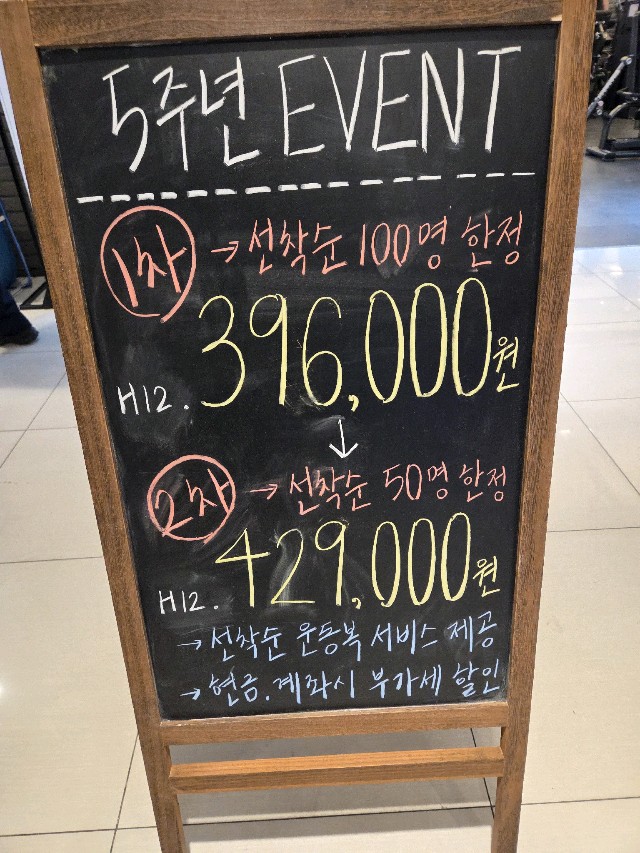 5주년 EVENT
1차 → 선착순 100명 한정
H12. 396,000원
↓
2차 → 선착순 50명 한정
H12. 429,000원
→ 선착순 운동복 서비스 제공
→ 현금.계좌시 부가세 할인